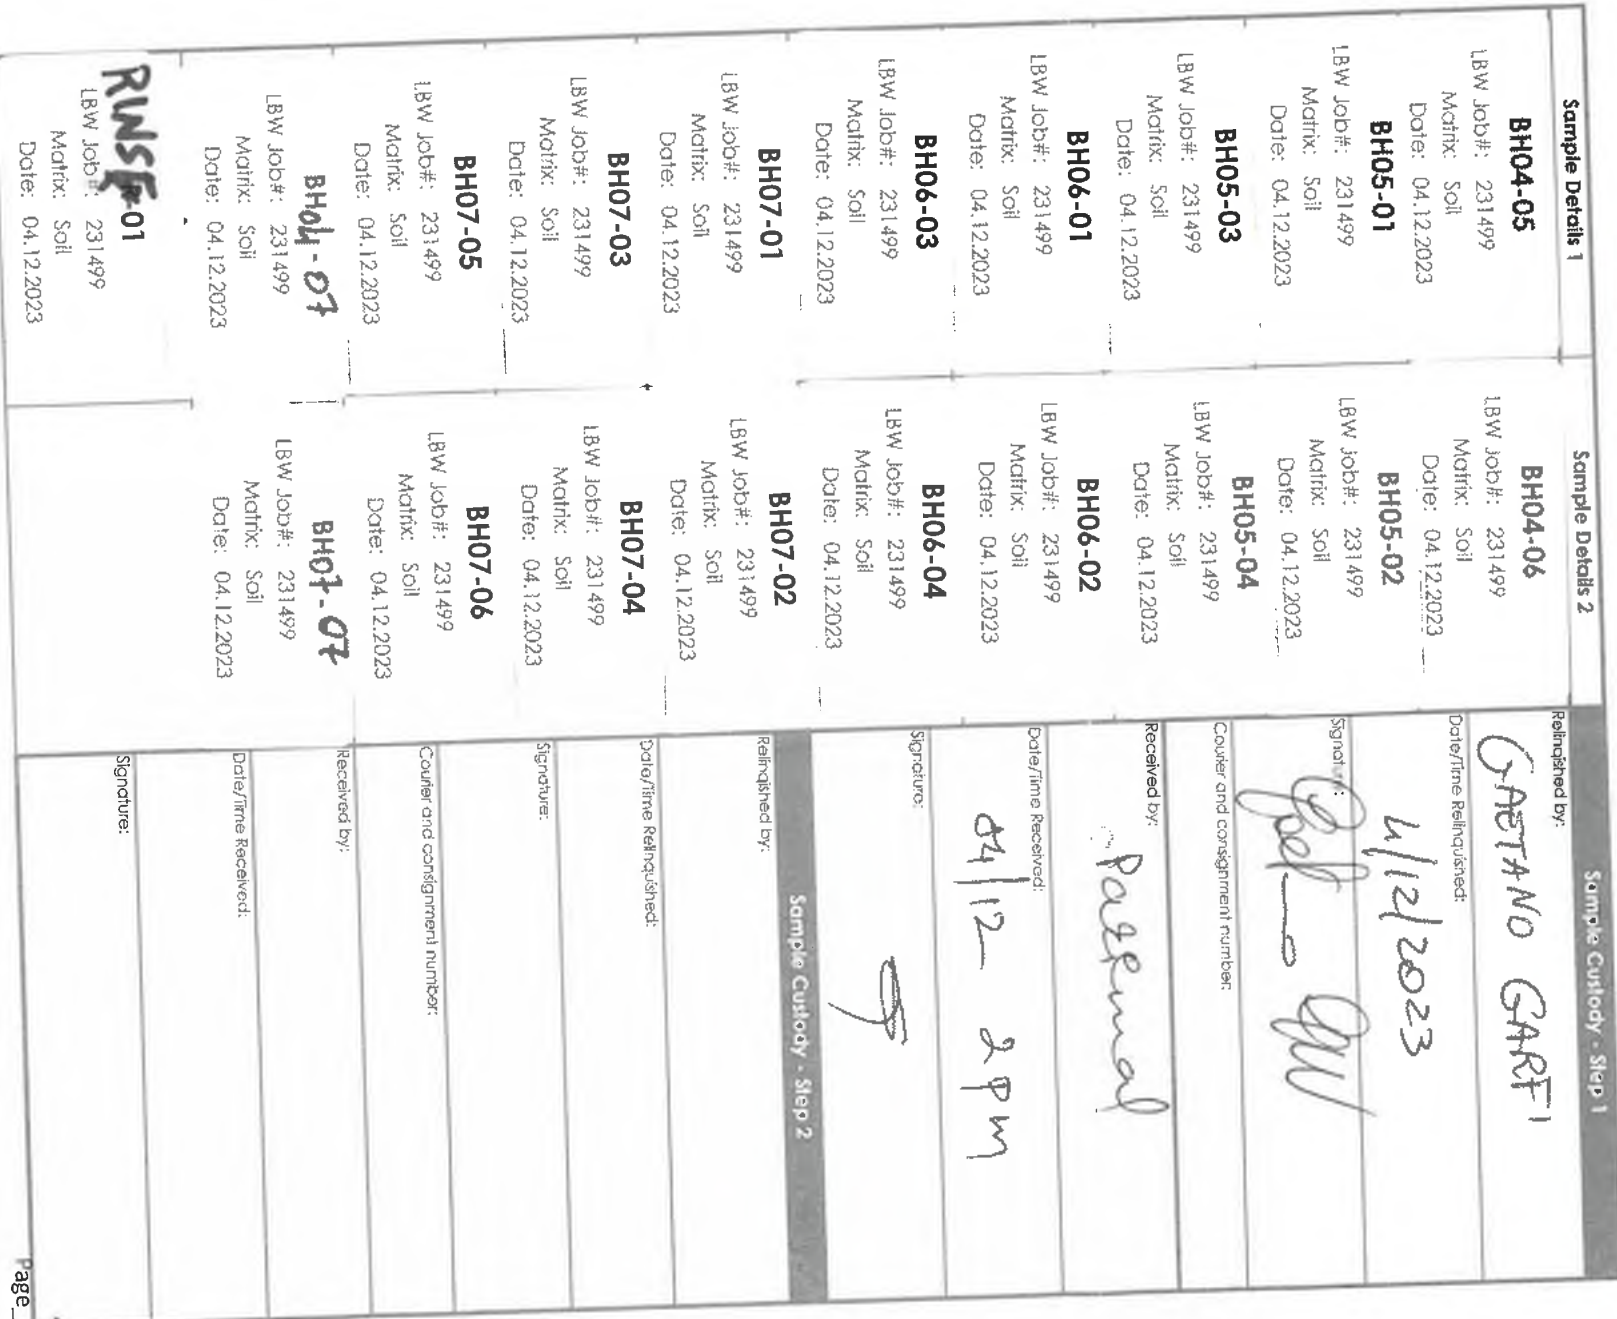 Sample Details 1
BH04-05
LBW Job#: 231499
Matrix: Soil
Date: 04.12.2023
BH05-01
LBW Job#: 231499
Matrix: Soil
Date: 04.12.2023
BH05-03
LBW Job#: 231499
Matrix: Soil
Date: 04.12.2023
BH06-01
LBW Job#: 231499
Matrix: Soil
Date: 04.12.2023
BH06-03
LBW Job#: 231499
Matrix: Soil
Date: 04.12.2023
BH07-01
LBW Job#: 231499
Matrix: Soil
Date: 04.12.2023
BH07-03
LBW Job#: 231499
Matrix: Soil
Date: 04.12.2023
BH07-05
LBW Job#: 231499
Matrix: Soil
Date: 04.12.2023
BH04-07
LBW Job#: 231499
Matrix: Soil
Date: 04.12.2023
RINSE-01
LBW Job#: 231499
Matrix: Soil
Date: 04.12.2023
Sample Details 2
BH04-06
LBW Job#: 231499
Matrix: Soil
Date: 04.12.2023
BH05-02
LBW Job#: 231499
Matrix: Soil
Date: 04.12.2023
BH05-04
LBW Job#: 231499
Matrix: Soil
Date: 04.12.2023
BH06-02
LBW Job#: 231499
Matrix: Soil
Date: 04.12.2023
BH06-04
LBW Job#: 231499
Matrix: Soil
Date: 04.12.2023
BH07-02
LBW Job#: 231499
Matrix: Soil
Date: 04.12.2023
BH07-04
LBW Job#: 231499
Matrix: Soil
Date: 04.12.2023
BH07-06
LBW Job#: 231499
Matrix: Soil
Date: 04.12.2023
BH07-07
LBW Job#: 231499
Matrix: Soil
Date: 04.12.2023
Sample Custody - Step 1
Relinqished by:
GAETANO GARFI
Date/Time Relinquished:
4/12/2023
Signature:
Courier and consignment number:
Received by:
Date/Time Received:
04/12 2pm
Signature:
Sample Custody - Step 2
Relinqished by:
Date/Time Relinquished:
Signature:
Courier and consignment number:
Received by:
Date/Time Received:
Signature:
Page_